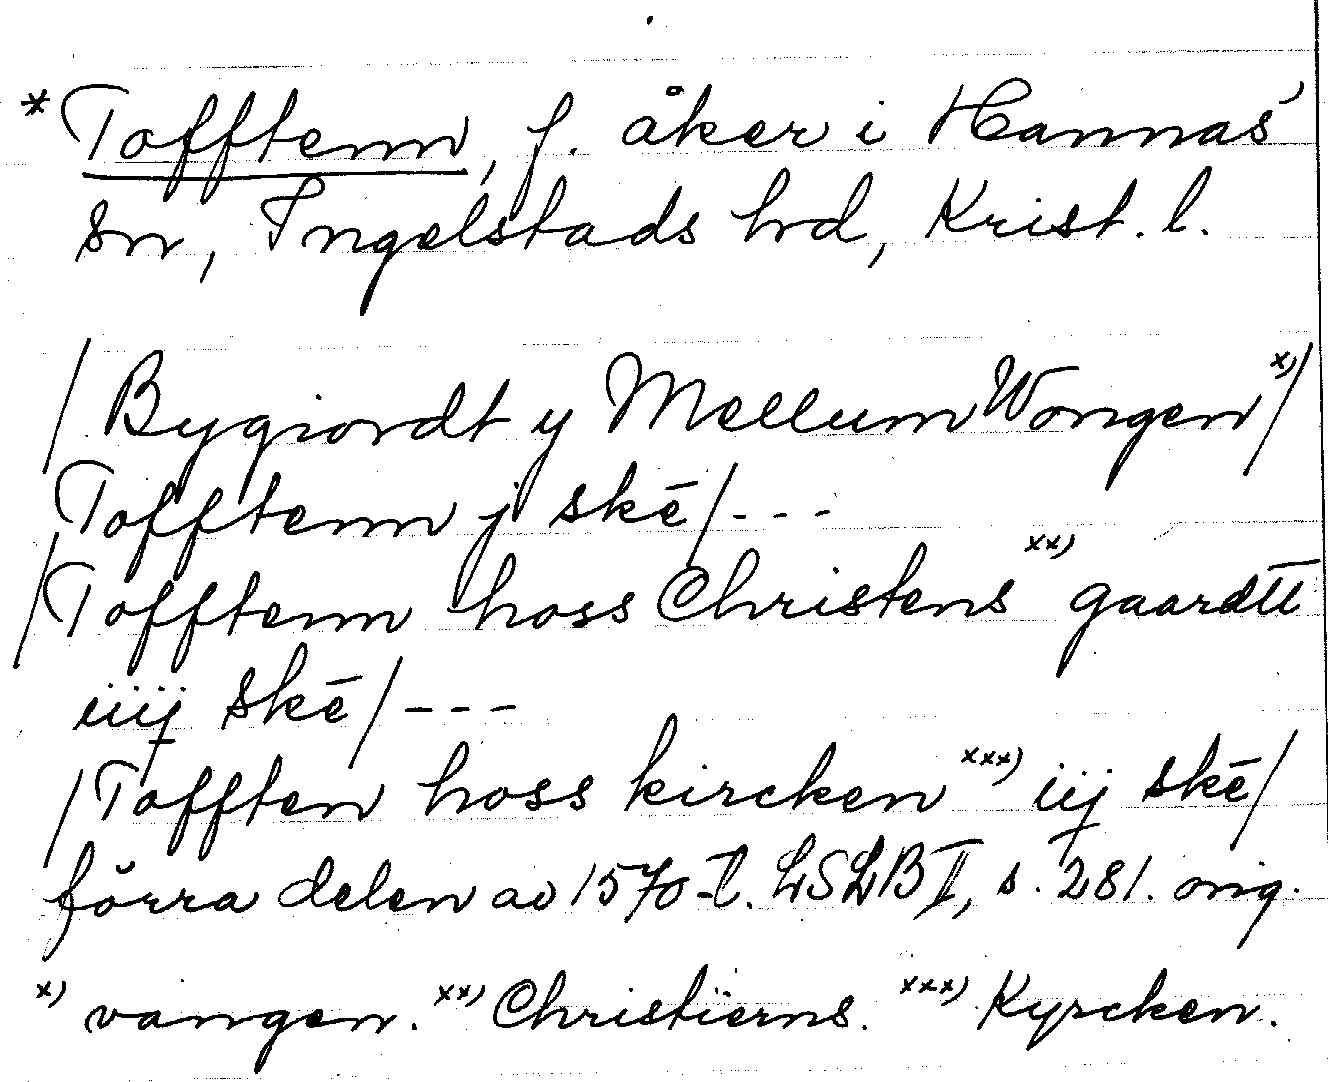 *Tofftenn, f. åker i Hannas'
sn, Ingelstads hd, Krist. l.
/Bygiordt y Mellum Wongen x)/
Tofftenn j skē/---
/Tofftenn hoss Christens xx) gaardtt
iiij skē/---
/Tofften hoss kircken xxx) iij skē/
förra delen av 1570-t. LSLB II, s. 281. orig.
x) vangen. xx) Christierns. xxx) Kyrcken.